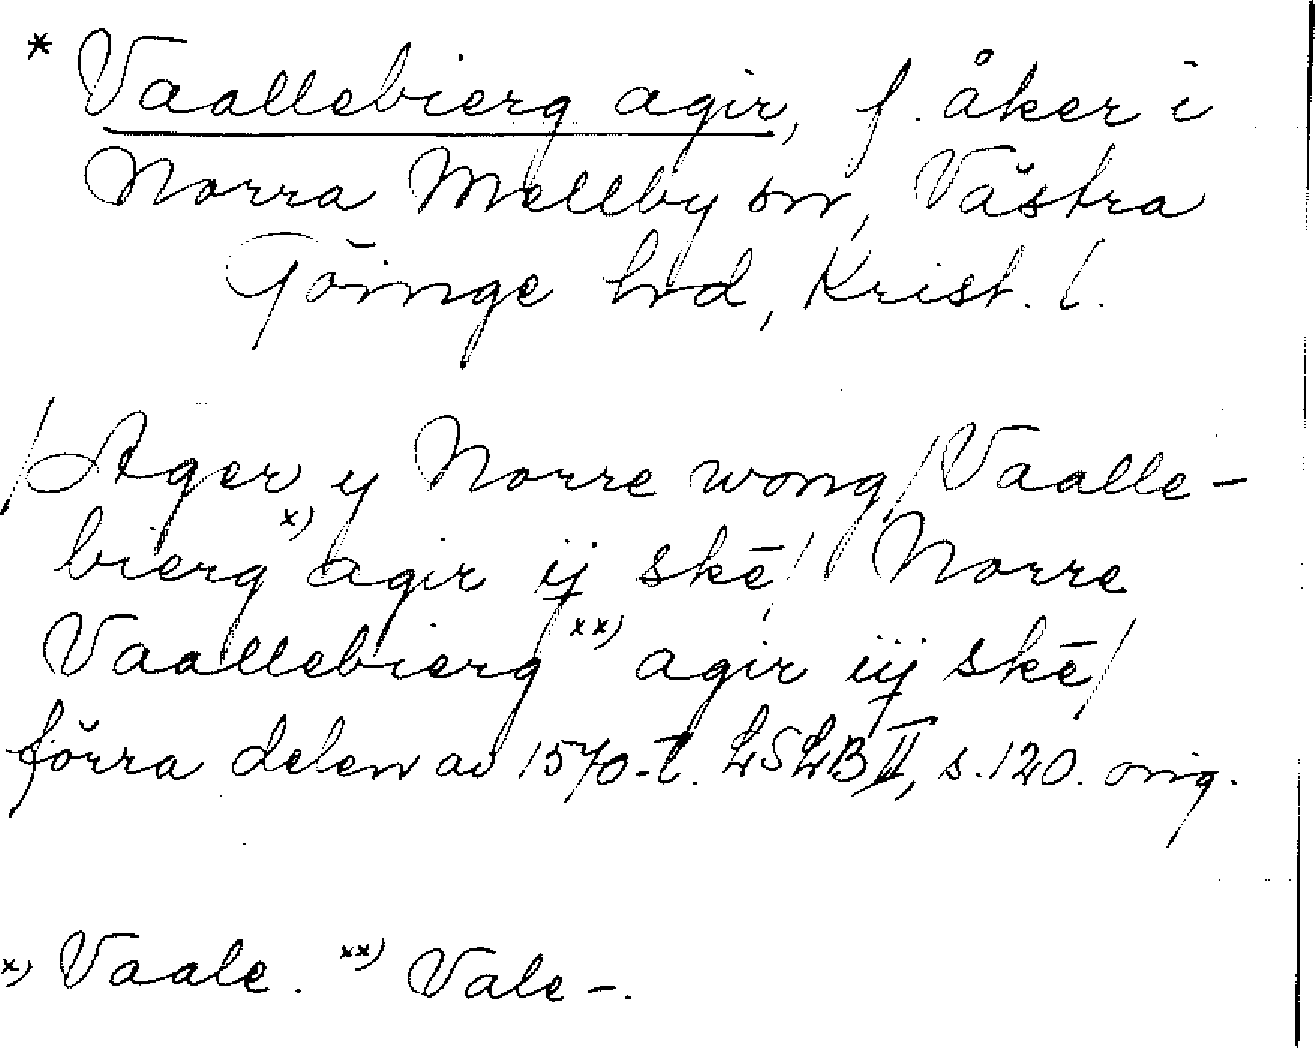 * Vaallebierg agir, f. åker i
Norra Mellby sn, Västra
Göinge hd, Krist. l.
/Ager y Norre wong/ Vaalle-
bierg x) agir ij skē/ Norre
Vaallebierg xx) agir iij skē/
förra delen av 1570-t. LSLB II, s. 120. orig.
x) Vaale. xx) Vale-.